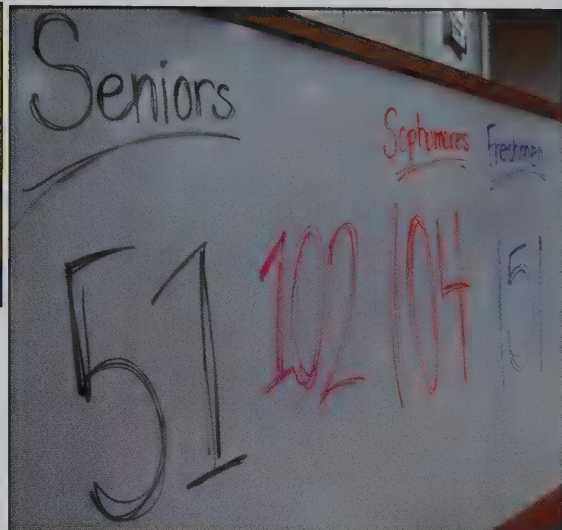 Seniors Sophomores Freshmen
51 102 104